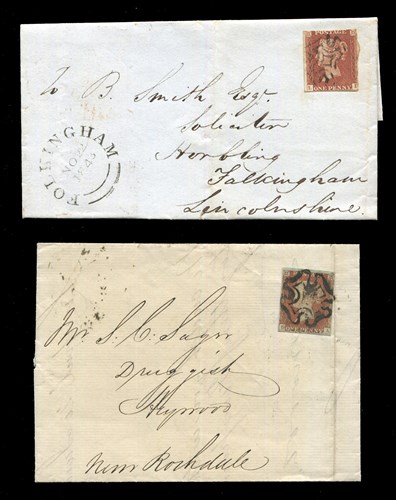 POSTAGE
ONE PENNY
To B. Smith Esqr.
Solicitor
Horbling
Falkingham
Lincolnshire.
FOLKINGHAM
NO 22
1843
ONE PENNY
Mr S. C.
Druggist
Heywood
Near Rochdale